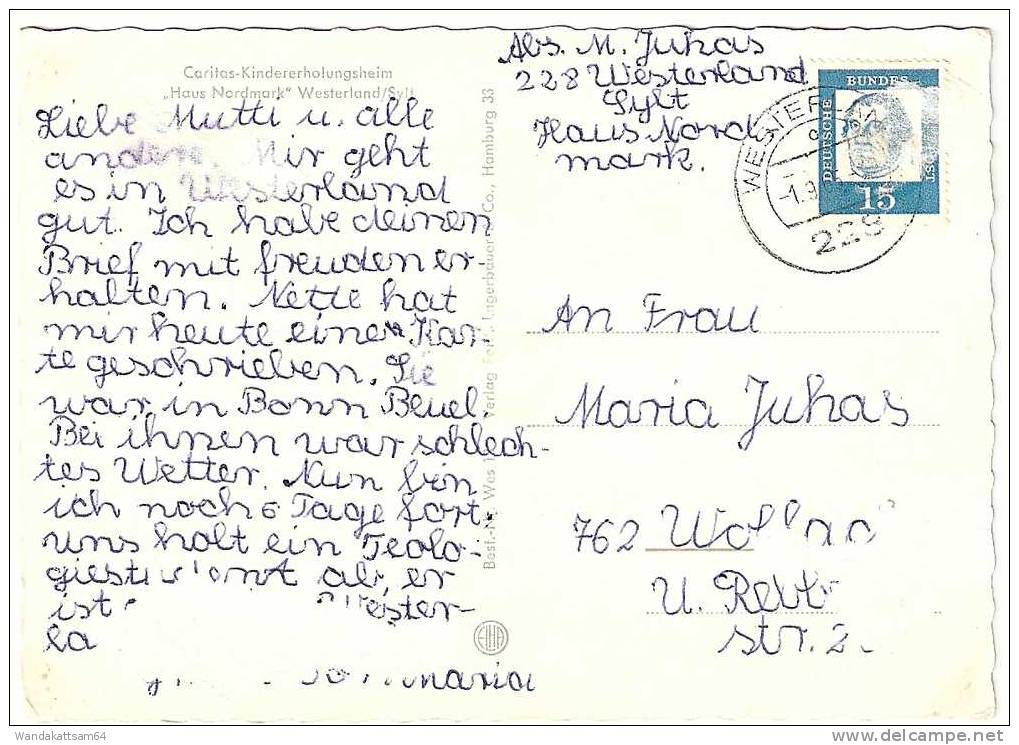 Caritas-Kindererholungsheim
„Haus Nordmark" Westerland/Sylt
Liebe Mutti u. alle
andern. Mir geht
es in Westerland
gut. Ich habe deinen
Brief mit freuden er-
halten. Nette hat
mir heute einen Kar-
te geschrieben. Sie
war in Bonn Beuel.
Bei ihnen war schlech-
tes Wetter. Nun bin
ich noch 6 Tage fort.
uns holt ein Teolo-
ab, er
ist
la
Verlag
Co., Hamburg 33
EIHA
Abs. M. Juhas
228 Westerland
Sylt
Haus Nord
mark.
DEUTSCHE BUNDES
15
WESTERLAND
228
An Frau
Maria Juhas
762
U. Rettr
str. 2
Wandakattsam64
delcampe.net